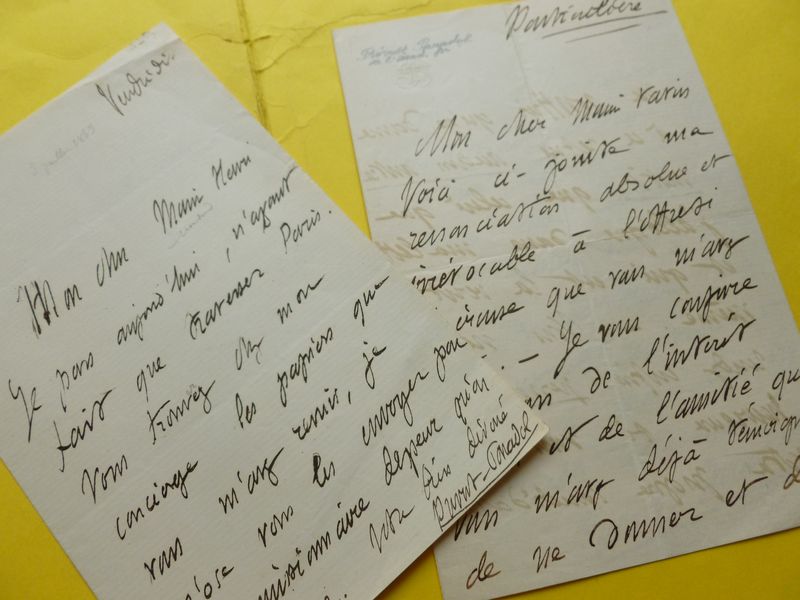 Vendredi.
Mon cher Henri
Je pars aujourd'hui, n'ayant
fait que traverser Paris.
Vous trouvez chez mon
concierge les papiers que
vous m'avez remis, je
n'ose vous les envoyer par
missionnaire de peur qu'on
Votre bien dévoué
Prévost-Paradol
Particulière
Mon cher
Voici ci-jointe ma
renonciation absolue et
irrévocable à l'offre si
cieuse que vous m'avez
. — Je vous conjure
de l'intérêt
et de l'amitié que
vous m'avez déjà témoigné
de ne donner et d